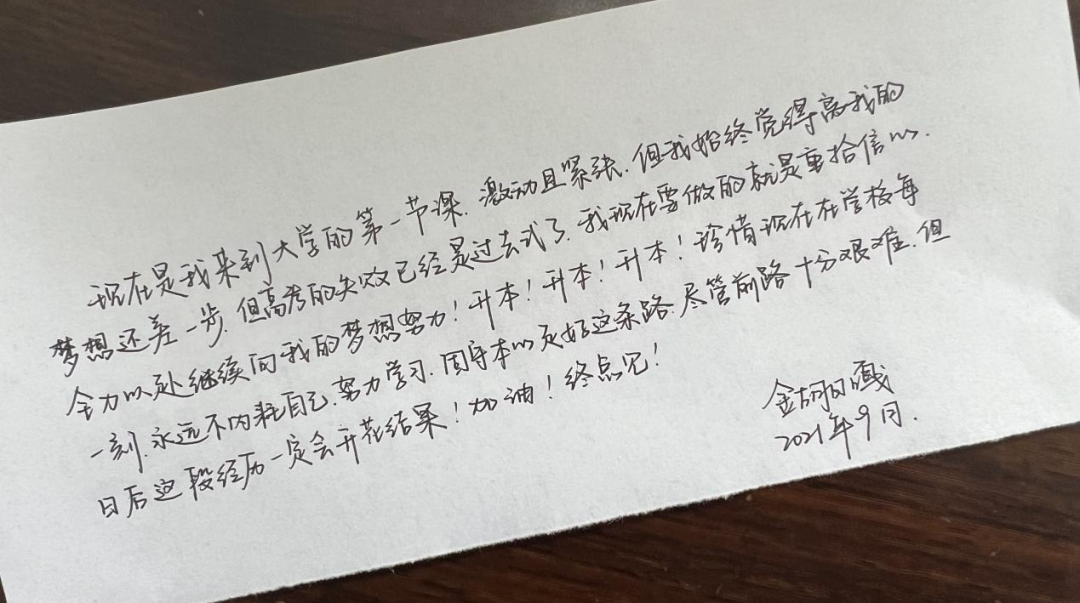 现在是我来到大学的第一节课.激动且紧张.但我始终觉得离我的
梦想还差一步.但高考的失败已经是过去式了.我现在要做的就是重拾信心.
全力以赴继续向我的梦想努力!升本!升本!升本!珍惜现在在学校每
一刻.永远不内耗自己.努力学习.固守本心走好这条路.尽管前路十分艰难.但
日后这段经历一定会开花结果!加油!终点见!
金胡
2021年9月.